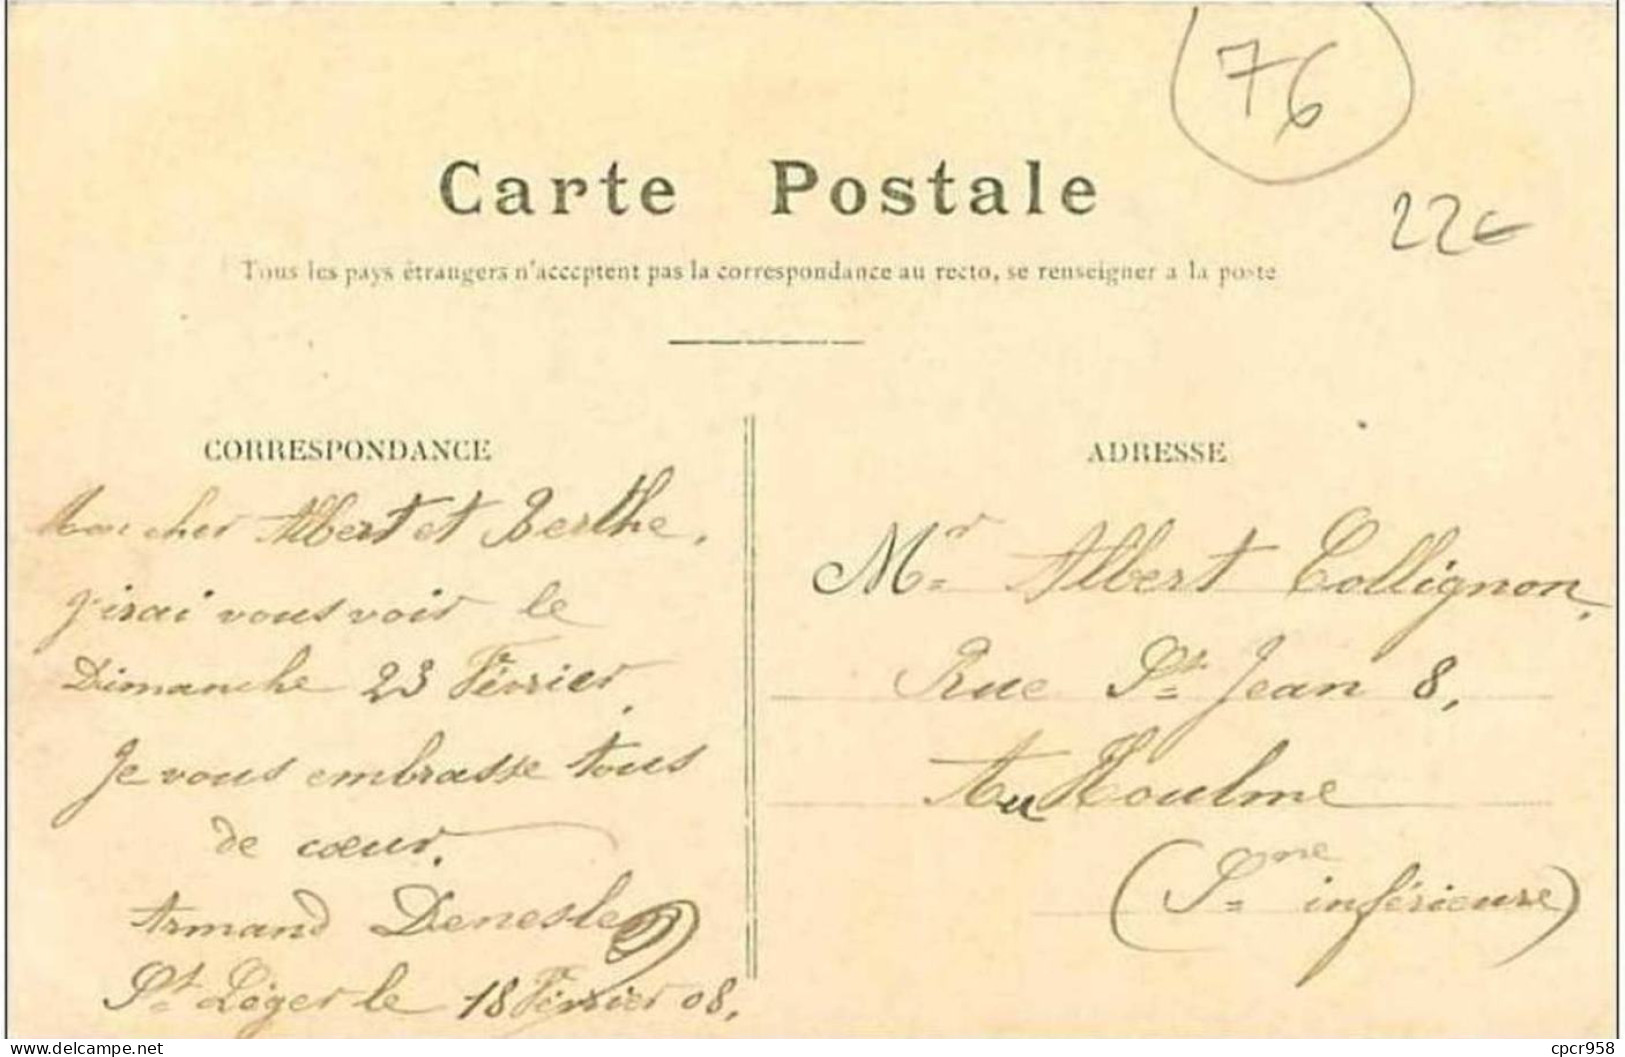 76
22€
Carte Postale
Tous les pays étrangers n'acceptent pas la correspondance au recto, se renseigner a la poste
CORRESPONDANCE
Mon cher Albert et Berthe,
j'irai vous voir le
Dimanche 23 Février,
Je vous embrasse tous
de cœur.
Armand Denesle
St Léger le 18 Février 08,
ADRESSE
Mr Albert Collignon,
Rue St Jean 8,
Au Houlme
(Sne inférieure)
cpcr958